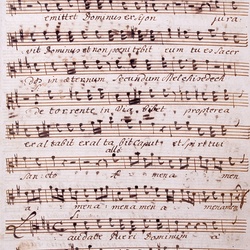 emittet Dominus ex Sion jura
vit Dominus et non poenitebit cum tu es Sacer
dos in aeternum, Secundum Melchisedech
de torrente in via bibet propterea
exaltabit exaltabit Caput et Spiritui
allo
Sancto a mena men
a mena mena mena menamen
audate Pueri Dominum a